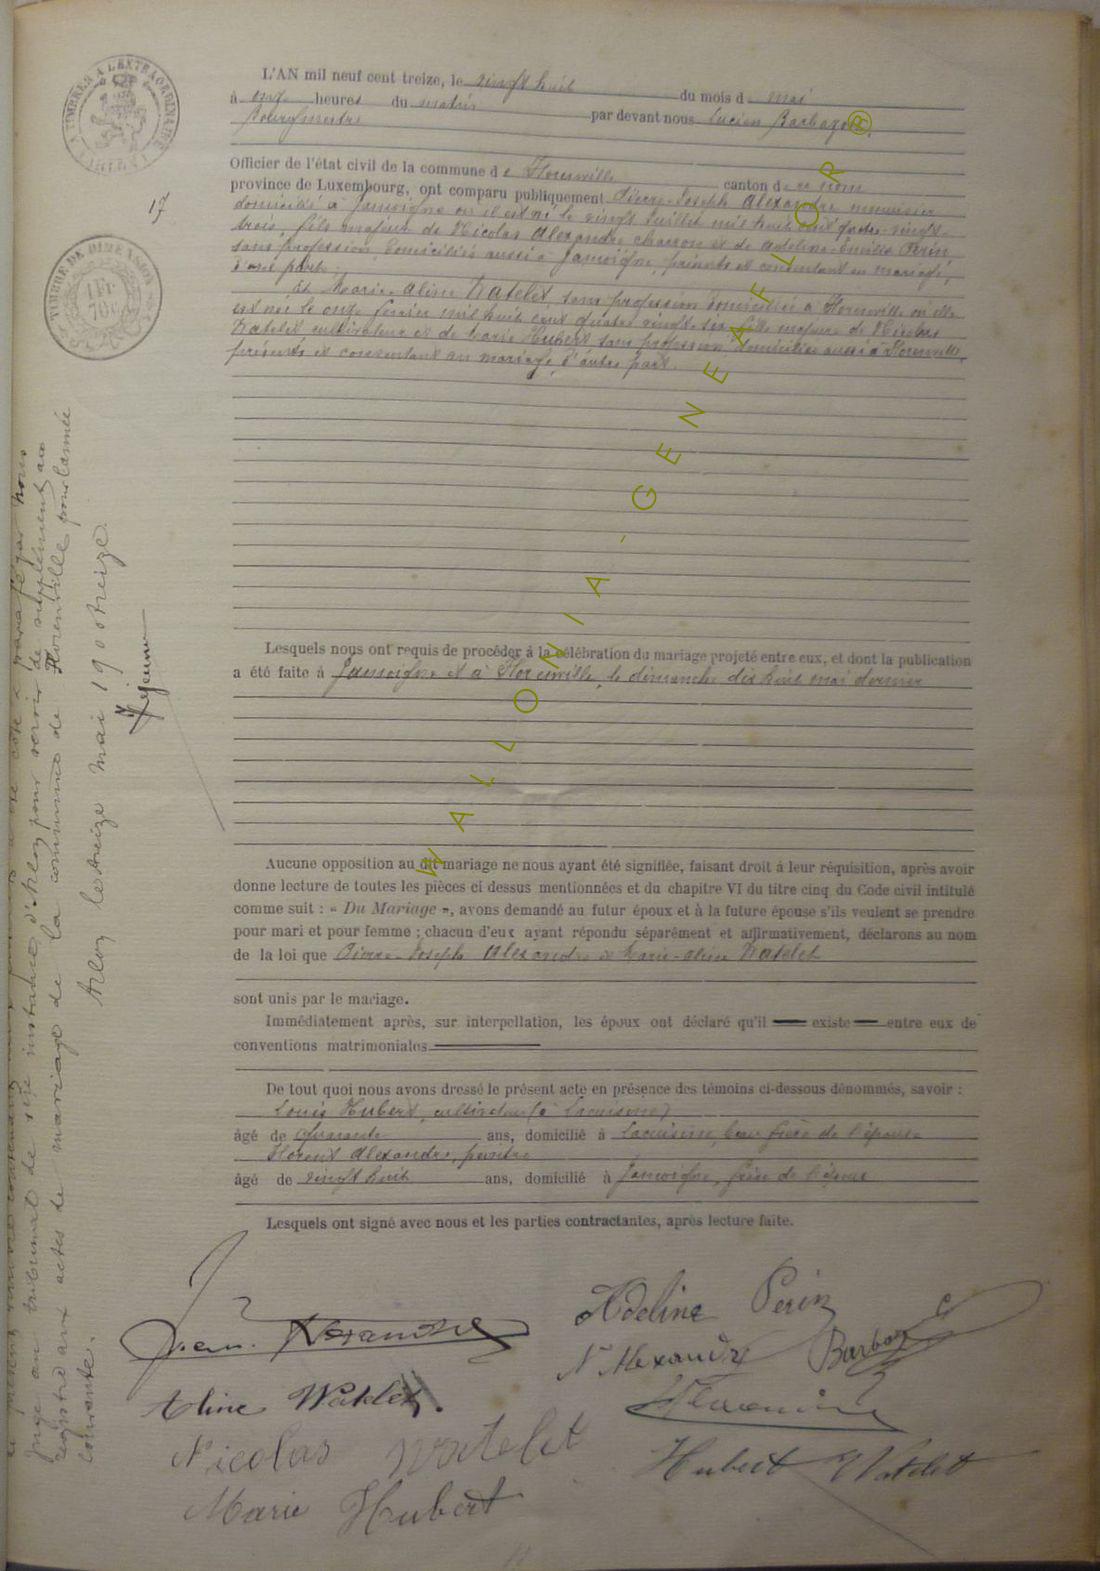 L'AN mil neuf cent treize, le vingt huit du mois d mai
à onze heures du matin par devant nous Lucien Barbazon,
Bourgmestre
Officier de l'état civil de la commune de Florenville canton de ce nom
province de Luxembourg, ont comparu publiquement Pierre-Joseph Alexandre menuisier
domicilié à Jamoigne où il est né le vingt Juillet mil huit cent quatre-vingt-
trois, fils majeur de Nicolas Alexandre charron et de Adeline-Emilie Perin
sans profession, domiciliés aussi à Jamoigne, présents et consentant au mariage,
d'une part.
Et Marie-Aline Watelet, sans profession domiciliée à Florenville où elle
est née le onze février mil huit cent quatre vingt-six fille majeure de Nicolas
Watelet cultivateur et de Marie Hubert sans profession domiciliés aussi à Florenville,
présents et consentant au mariage, d'autre part.
Lesquels nous ont requis de procéder à la célébration du mariage projeté entre eux, et dont la publication
a été faite à Jamoigne et à Florenville, le dimanche dix huit mai dernier
Aucune opposition au dit mariage ne nous ayant été signifiée, faisant droit à leur réquisition, après avoir
donne lecture de toutes les pièces ci dessus mentionnées et du chapitre VI du titre cinq du Code civil intitulé
comme suit : « Du Mariage », avons demandé au futur époux et à la future épouse s'ils veulent se prendre
pour mari et pour femme ; chacun d'eux ayant répondu séparément et affirmativement, déclarons au nom
de la loi que Pierre-Joseph Alexandre et Marie-Aline Watelet
sont unis par le mariage.
Immédiatement après, sur interpellation, les époux ont déclaré qu'il existe entre eux de
conventions matrimoniales
De tout quoi nous avons dressé le présent acte en présence des témoins ci-dessous dénommés, savoir :
Louis Hubert, cultivateur (à Lacuisine)
âgé de quarante ans, domicilié à Lacuisine, beau frère de l'épouse
Florent Alexandre, peintre
âgé de vingt huit ans, domicilié à Jamoigne, frère de l'époux
Lesquels ont signé avec nous et les parties contractantes, après lecture faite.
Alexandre
Adeline Perin
N Alexandre Barbazon
Aline Watelet.
Nicolas Watelet
Hubert Watelet
Marie Hubert
17
TIMBRE DE DIMENSION
juge au tribunal de 1ère instance d'Arlon pour servir de supplément au
registre aux actes de mariage de la commune de Florenville pour l'année
courante.
Arlon, le treize mai 1900 treize.
WALLONIA-GENEAFLOR®